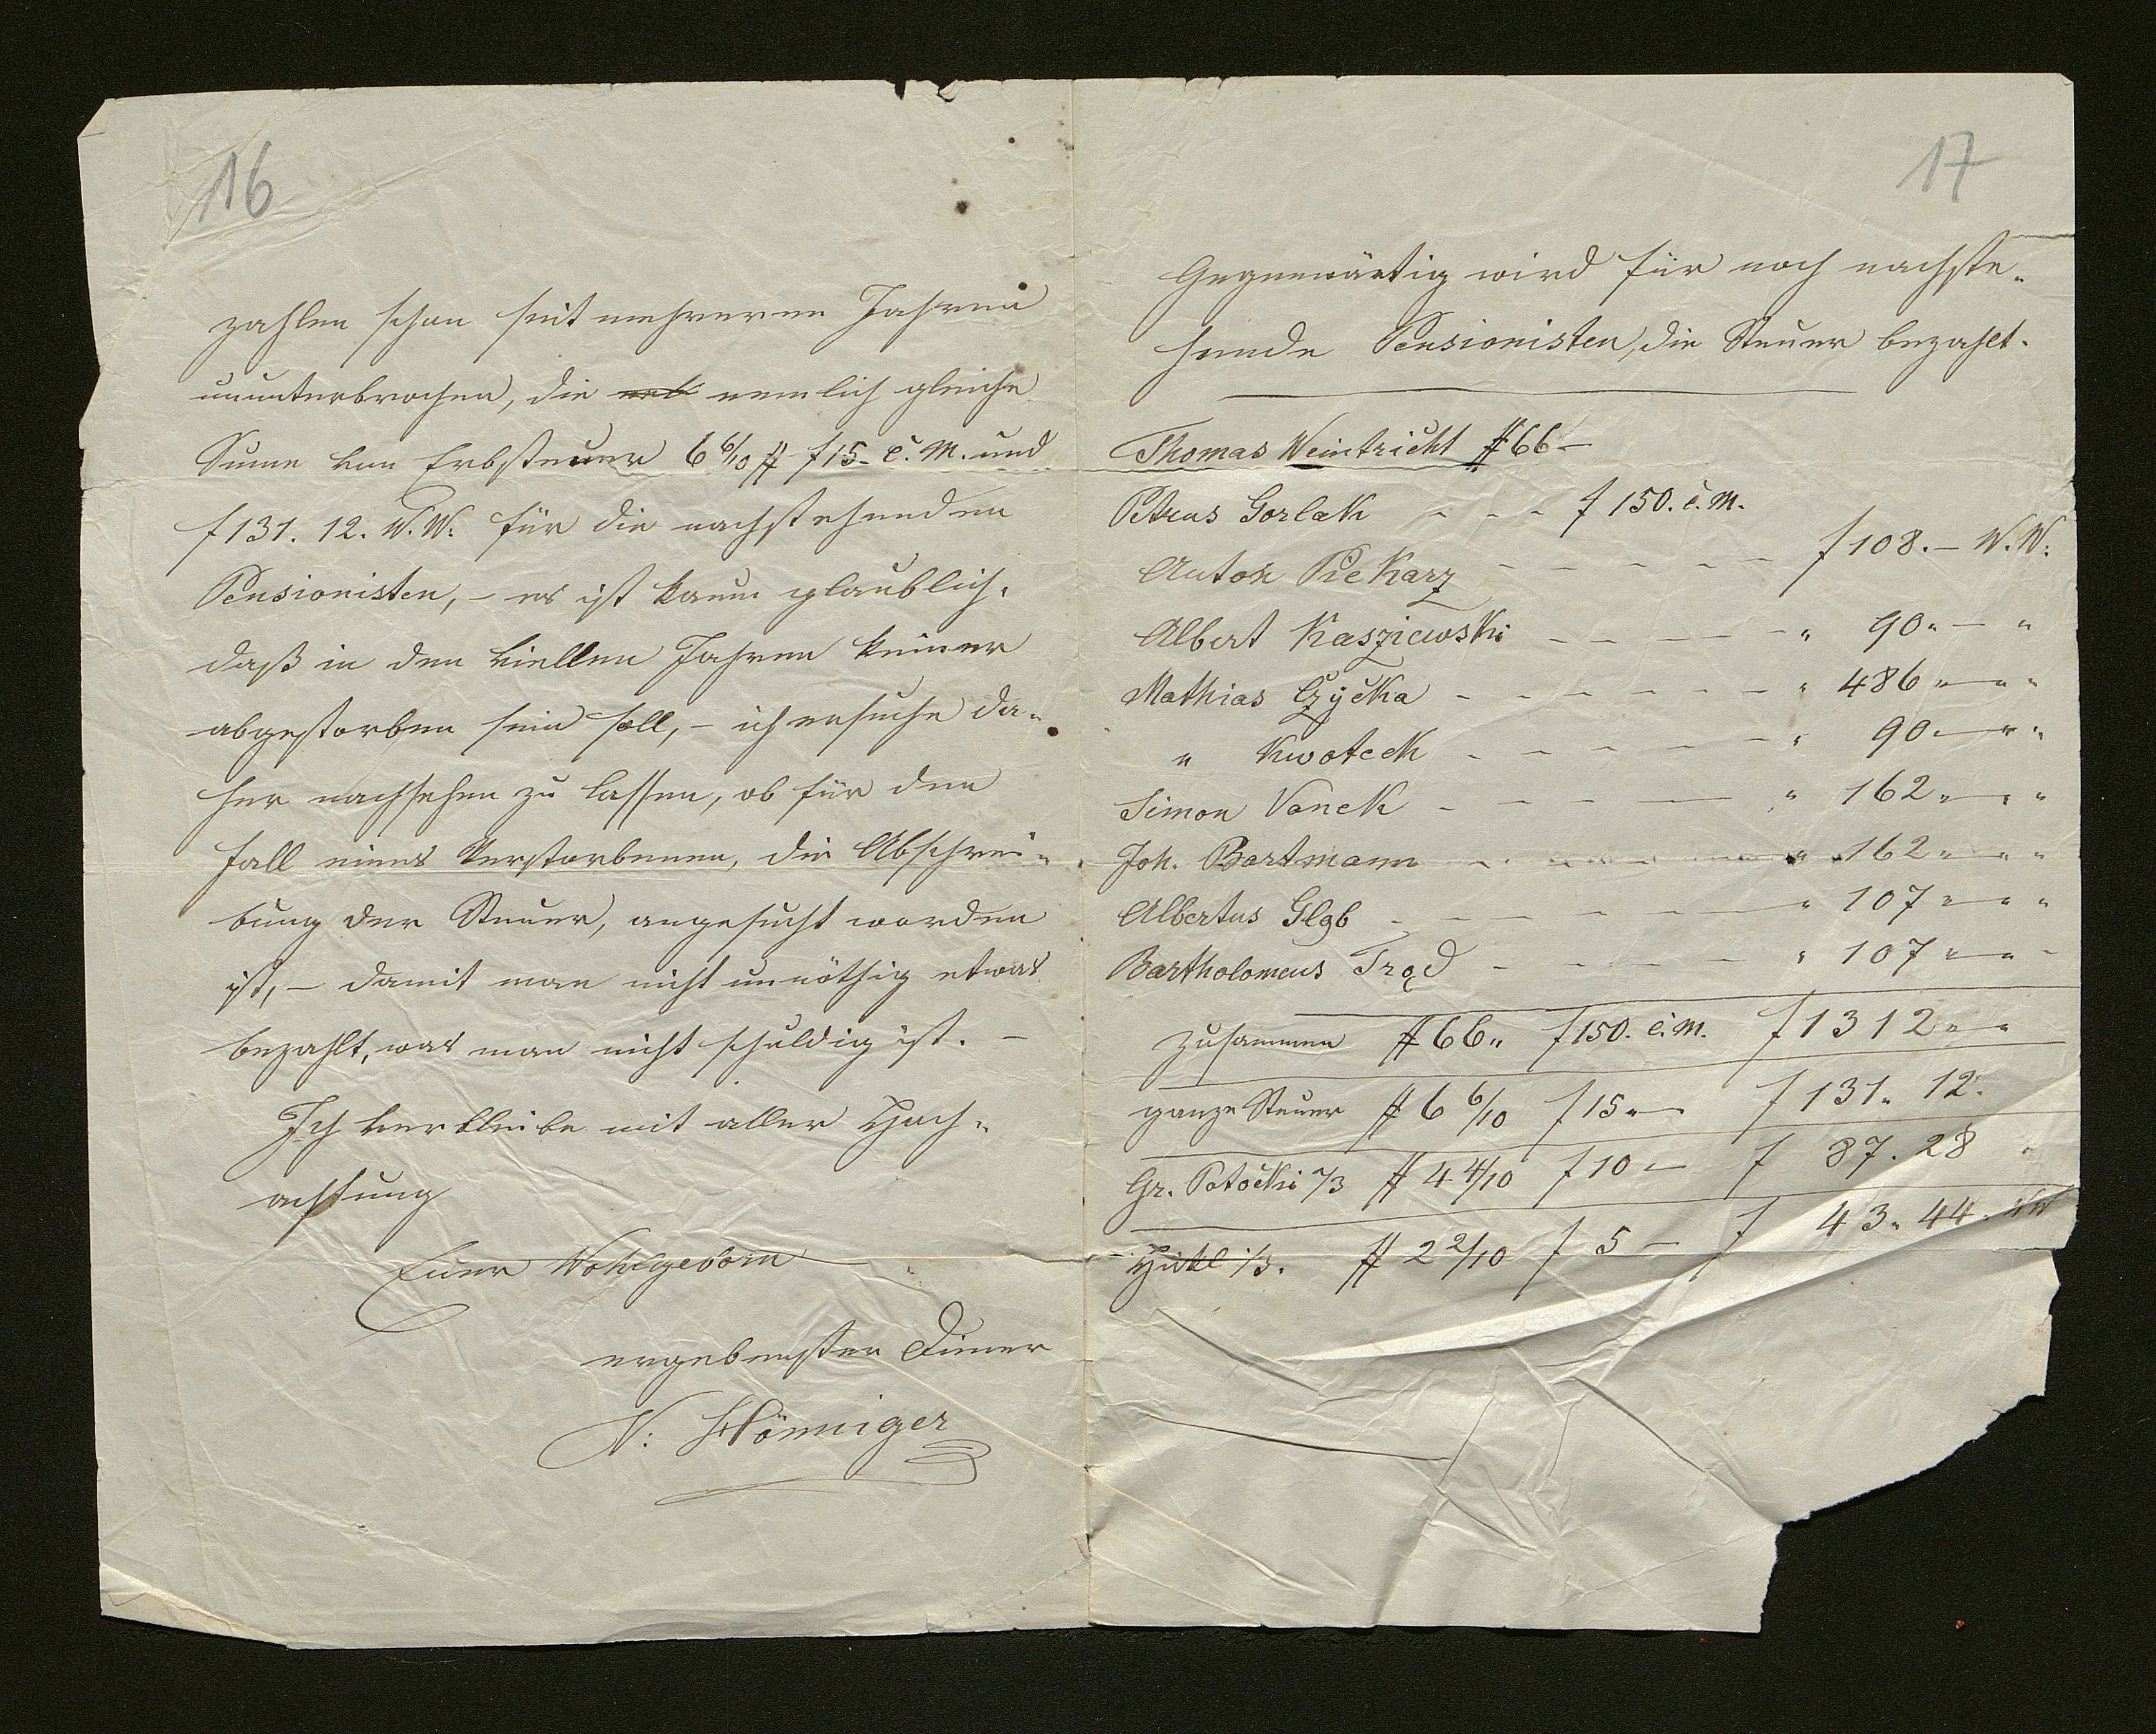 16
zahlen schon seit mehreren Jahren
ununterbrochen, die nemlich gleiche
Sume von Erbsteuer 6 6/10 # f 15 – C. M. und
f 131. 12. W. W. für die nachstehenden
Pensionisten, – es ist kaum glaublich,
daß in den viellen Jahren keiner
abgestorben sein soll, – ich ersuche da-
her nachsehen zu lassen, ob für den
Fall eines Verstorbenen, die Abschrei-
bung der Steuer, angesucht worden
ist, – damit man nicht unnöthig etwas
bezahlt, was man nicht schuldig ist. –
Ich verbleibe mit aller Hoch-
achtung
Euer Wohlgeborn
ergebenster Diener
N: Hönniger
17
Gegenwärtig wird für noch nachste-
hende Pensionisten, die Steuer bezahlt.
Thomas Weintricht # 66 –
Petrus Gorlak - - - f 150. C. M.
Anton Piekarz - - - - - f 108. – W. W.
Albert Kasziewski - - - - - " 90 " – "
Mathias Czyčka - - - - - - " 486 " – " "
" Kwoteck - - - - - " 90 – " "
Simon Vanek - - - - " 162 " – " "
Joh. Bartmann - - - - - " 162 " – " "
Albertus Gląb - - - - - " 107 " – " "
Bartholomeus Trąd - - - - - " 107 " – " -
zusammen # 66 " f 150. C. M. f 1312 " – "
ganze Steuer # 6 6/10 f 15 " – f 131. 12.
Gr. Potočki 2/3 # 4 4/10 f 10 – f 87. 28 "
1/3. # 2 2/10 f 5 – f 43. 44. WW